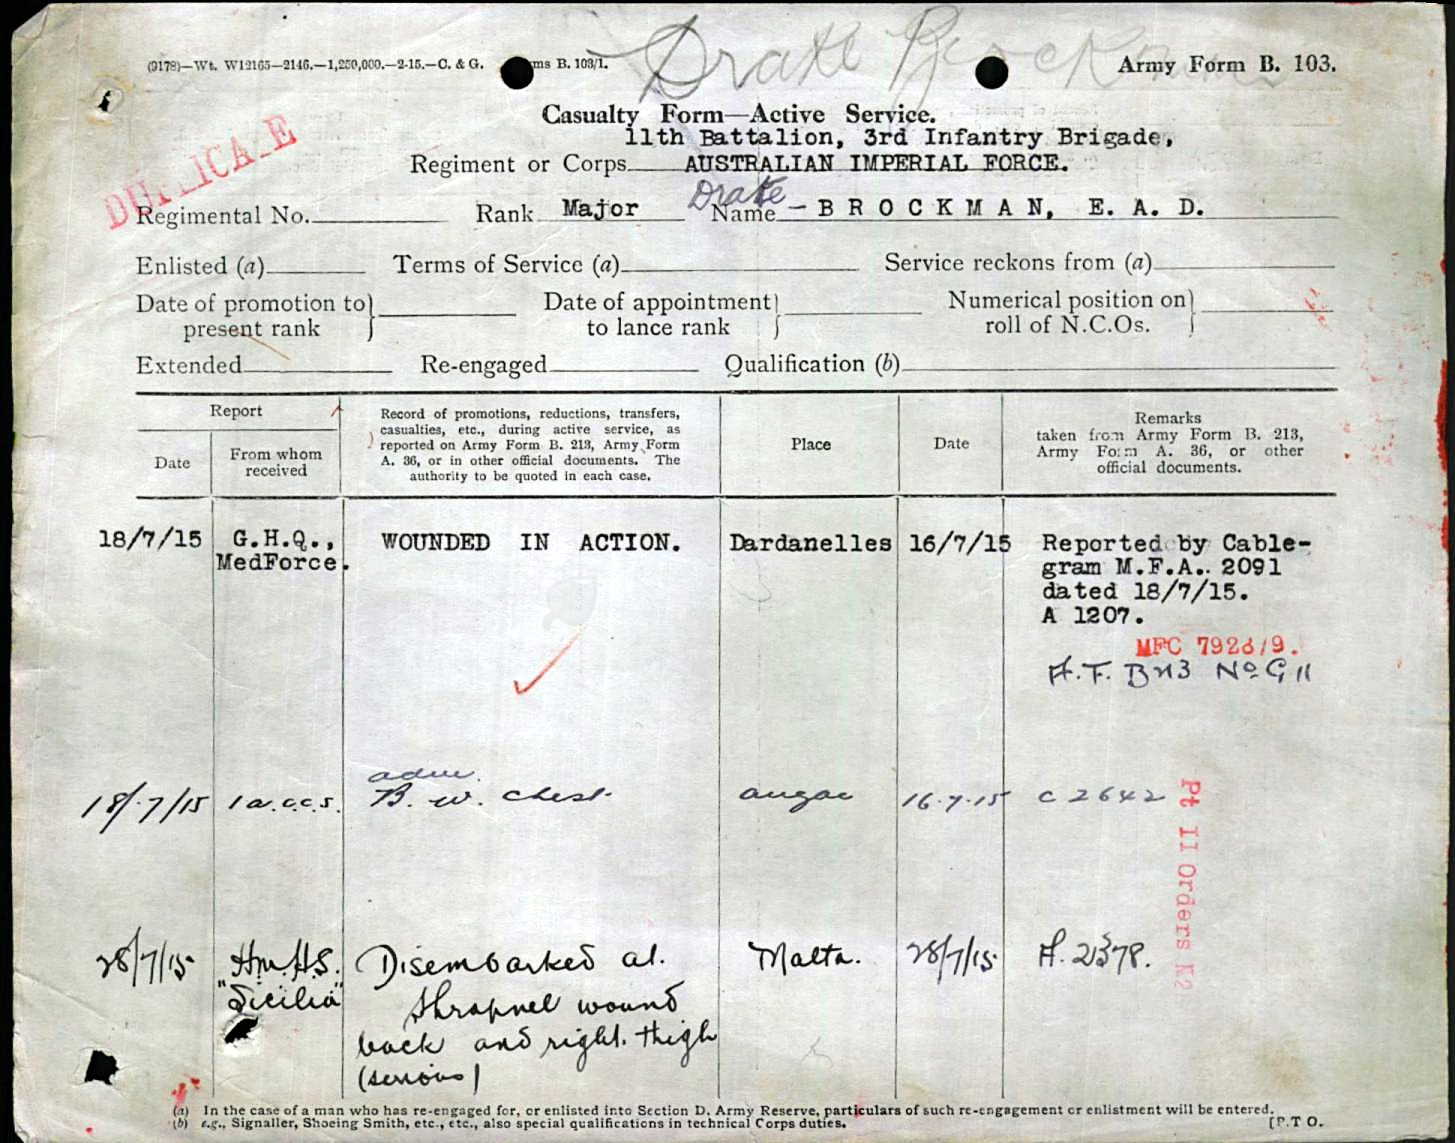 Drake Brockman
(9178)—Wt. W12165—2146.—1,250,000.—2-15.—C. & G. ms B. 103/1.
Army Form B. 103.
Casualty Form—Active Service.
11th Battalion, 3rd Infantry Brigade,
Regiment or Corps AUSTRALIAN IMPERIAL FORCE.
DUPLICATE
Drake
Regimental No. Rank Major Name - BROCKMAN, E. A. D.
Enlisted (a) Terms of Service (a) Service reckons from (a)
Date of promotion to present rank } Date of appointment to lance rank } Numerical position on roll of N.C.Os. }
Extended Re-engaged Qualification (b)
Report
Date
From whom
received
Record of promotions, reductions, transfers,
casualties, etc., during active service, as
reported on Army Form B. 213, Army Form
A. 36, or in other official documents. The
authority to be quoted in each case.
Place
Date
Remarks
taken from Army Form B. 213,
Army Form A. 36, or other
official documents.
18/7/15 G.H.Q., WOUNDED IN ACTION. Dardanelles 16/7/15 Reported by Cable-
MedForce. gram M.F.A.. 2091
dated 18/7/15.
A 1207.
MFC 7928/9.
A.F. B213 No G 11
adm.
18/7/15 1 a.c.c.s. B. w. chest anzac 16.7.15 C 2642
Pt II Orders
28/7/15 Hm.H.S. Disembarked at. Malta. 28/7/15 A. 2378.
"Sicilia" Shrapnel wound
back and right thigh
(serious)
(a) In the case of a man who has re-engaged for, or enlisted into Section D. Army Reserve, particulars of such re-engagement or enlistment will be entered.
(b) e.g., Signaller, Shoeing Smith, etc., etc., also special qualifications in technical Corps duties. [P.T O.